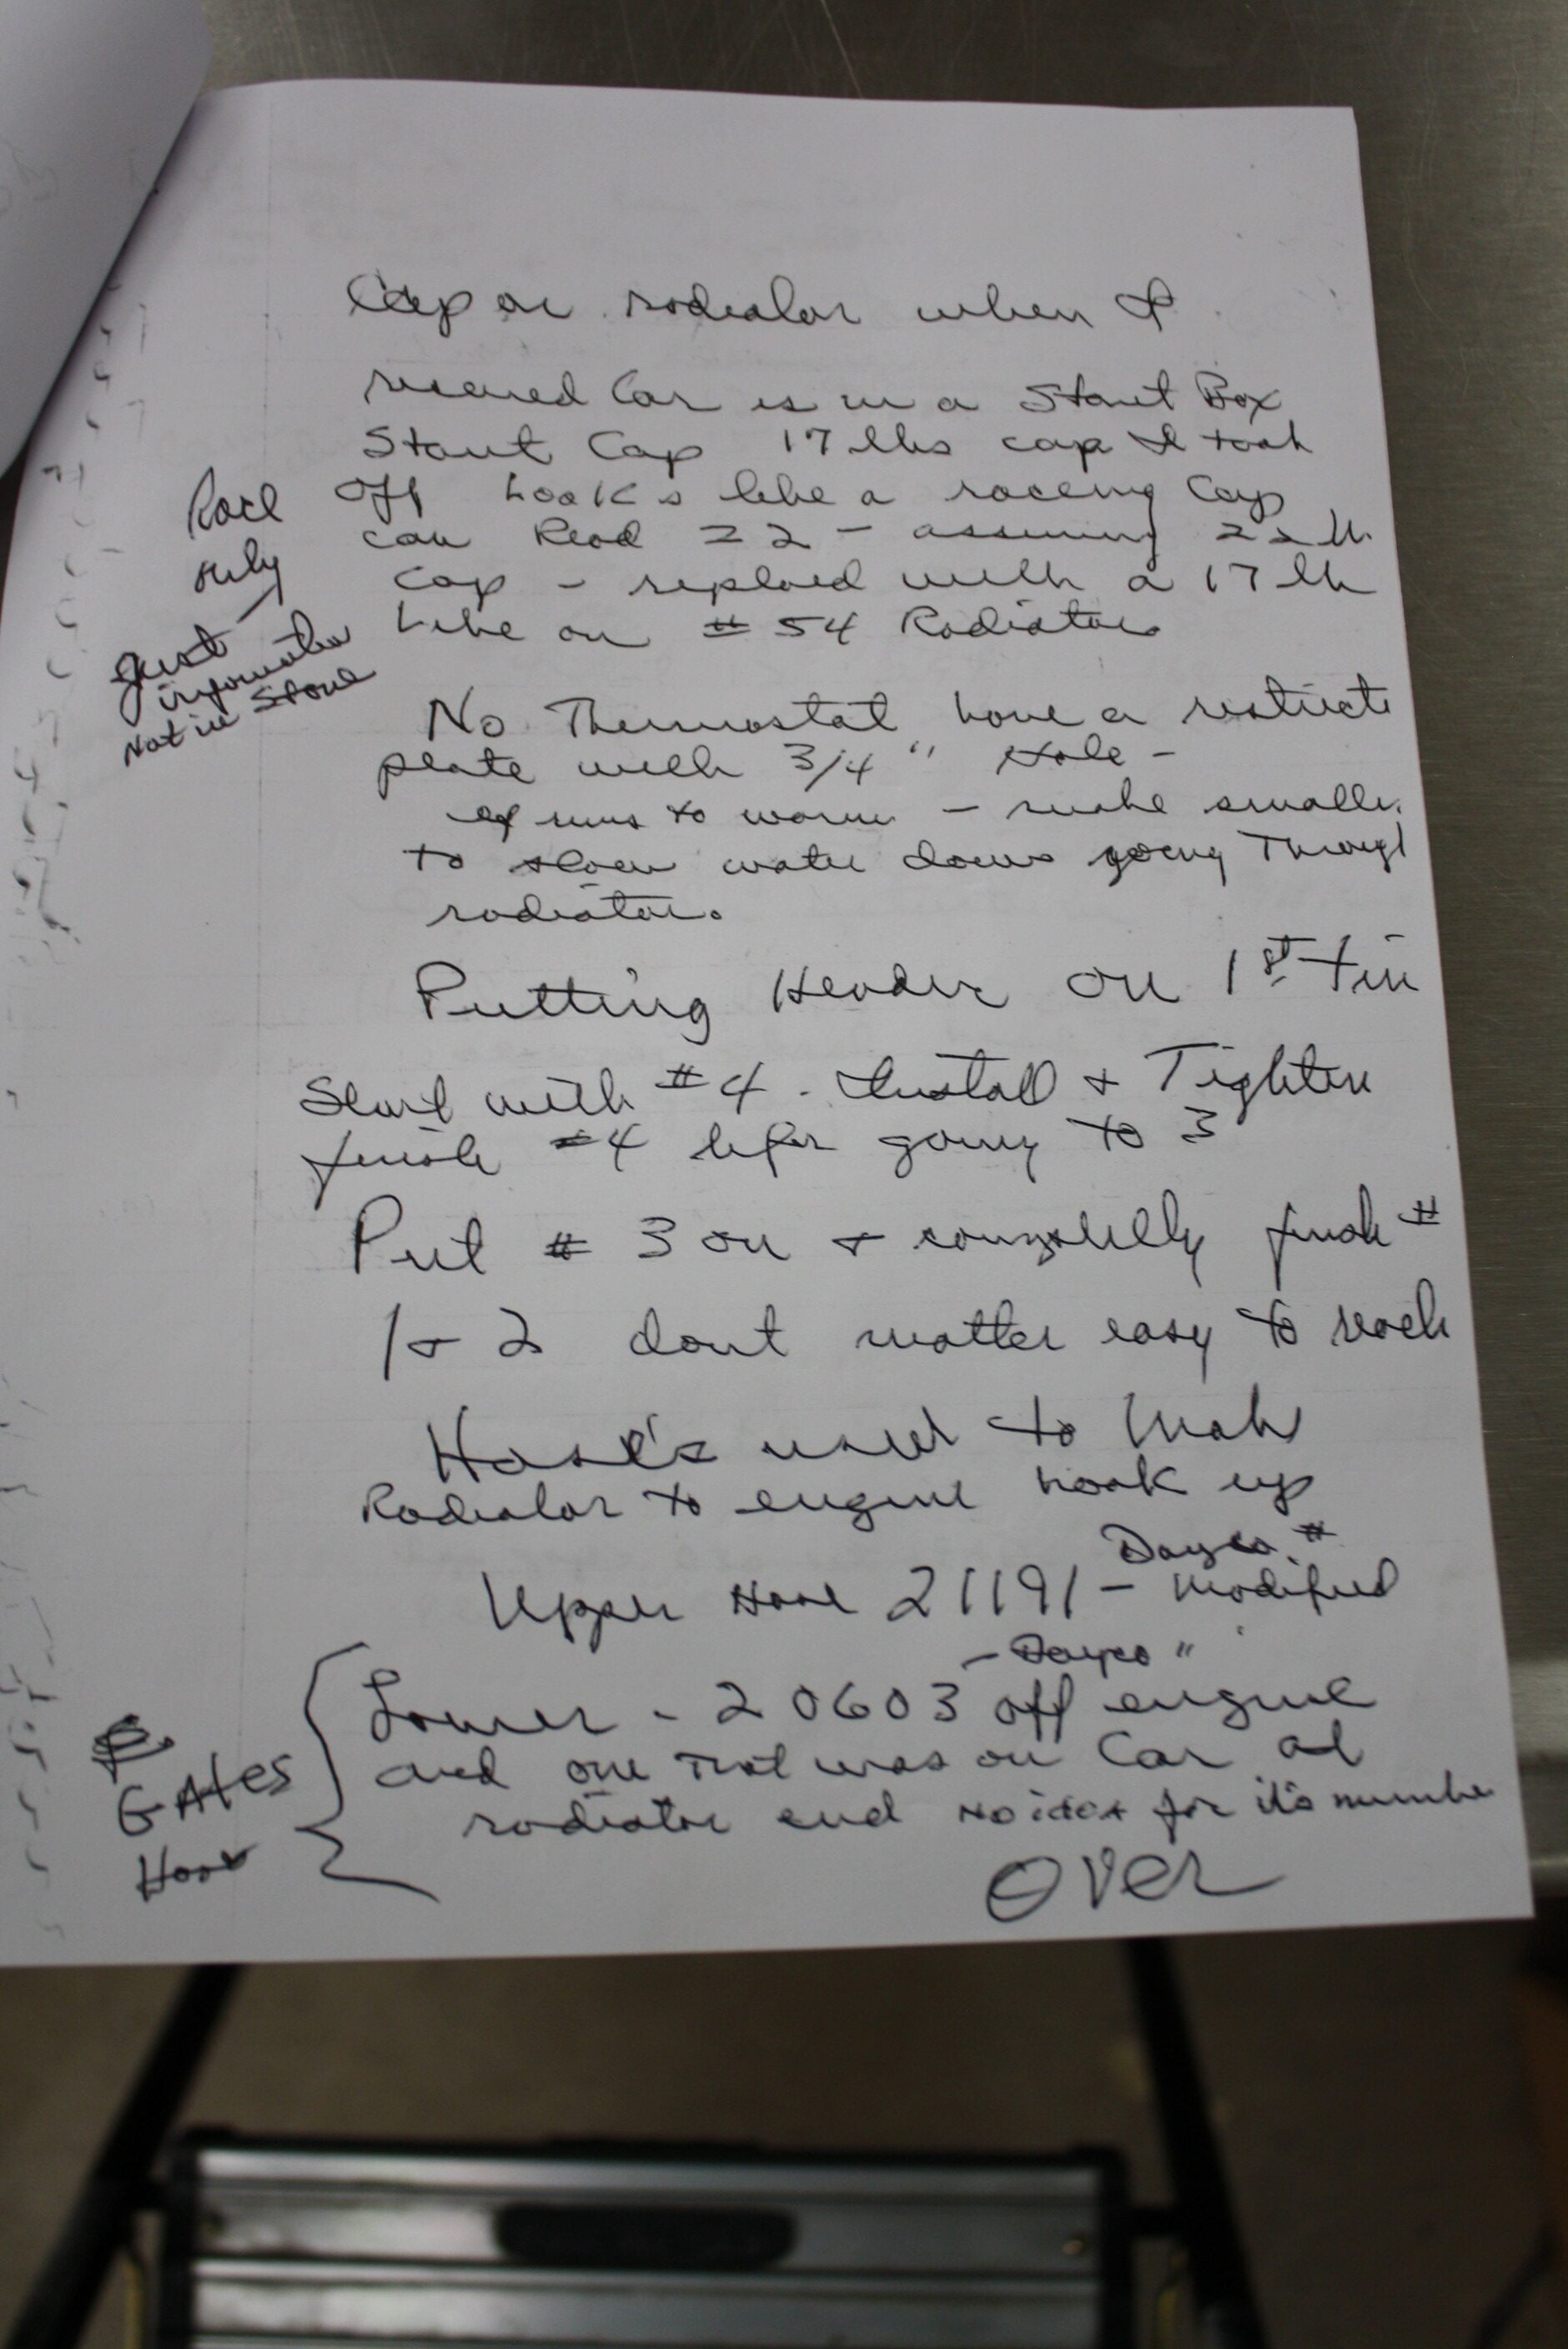 Cap on radiator when I
received Car is in a Stant Box
Stant Cap 17 lbs cap I took
off Looks like a raceing Cap
can Read 22 - assuming 22 lb.
cap - replaced with a 17 lb
Like on # 54 Radiator
Race
only
Just
information
Not in Stone
No Thermostat have a restricte
plate with 3/4" Hole -
if runs to warm - make smaller
to slow water down going Through
radiator.
Putting Header on 1st Time
Start with #4. Install + Tighten
finish #4 befor going to 3
Put # 3 on + completly finish #
1 + 2 dont matter easy to reach
Hose's used to Make
Radiator to engine hook up
Dayco #
Upper Hose 21191 - Modified
- Dayco "
Lower - 20603 off engine
and one That was on Car at
radiator end No idea for it's number
GAtes
Hose
OVER